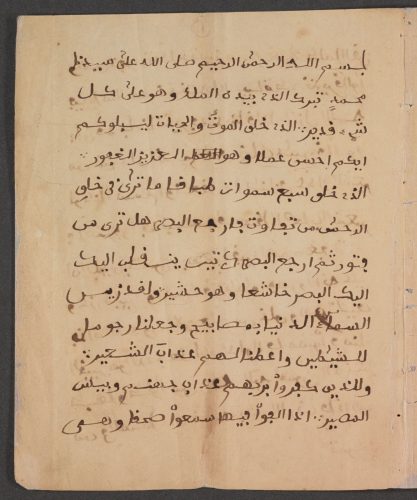 بسم الله الرحمن الرحيم صلى الله على سيدنا
محمد تبرك الذي بيده الملك وهو على كل
شيء قدير الذي خلق الموت والحيات ليبلوكم
ايكم احسن عملا وهو العزيز الغفور
الذي خلق سبع سموات طباقا ما ترى في خلق
الرحمن من تفاوت فارجع البصر هل ترى من
فتور ثم ارجع البصر كرتين ينقلب اليك
اليك البصر خاشعا وهو حشير ولقد زين
السماء الدنيا بمصابيح وجعلنا رجوما
للشيطين واعتدنا لهم عذاب الشعير
وللذين كفروا بربهم عذاب جهنم وبيس
المصير اذا القوا فيها سمعوا